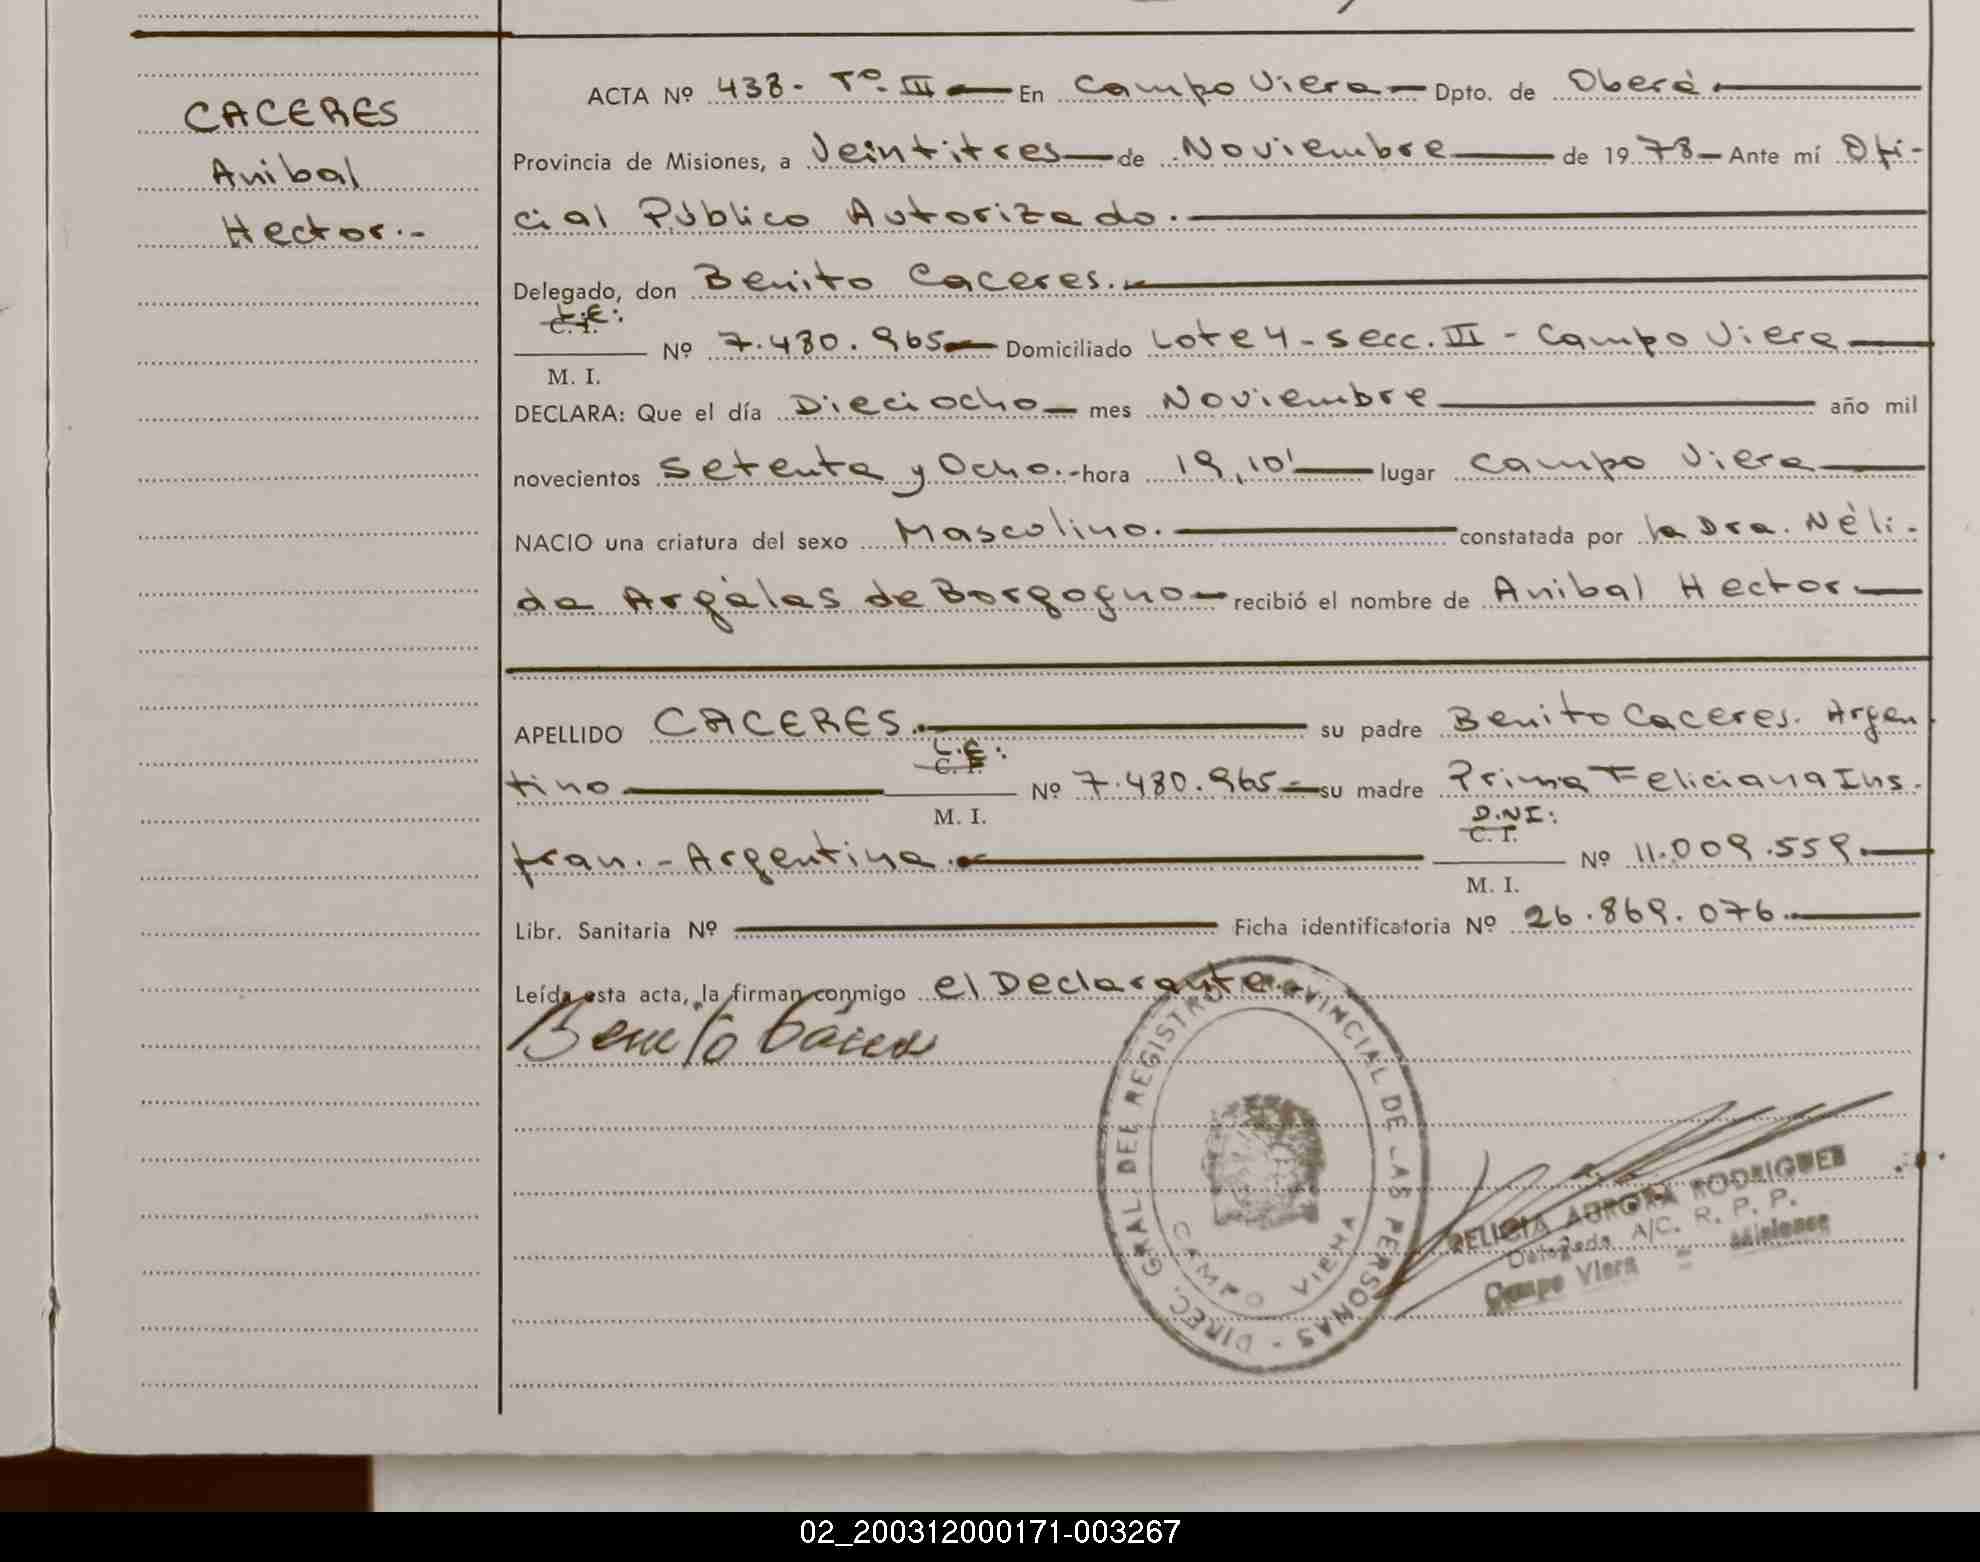 CACERES
Anibal
Hector.-
ACTA Nº 438- Tº. III — En Campo Viera — Dpto. de Oberá.
Provincia de Misiones, a Veintitres — de Noviembre — de 1978 — Ante mí Ofi-
cial Público Autorizado.
Delegado, don Benito Caceres.
L.E:
C. I.
Nº 7.480.965 — Domiciliado Lote 4 - secc. III - Campo Viera
M. I.
DECLARA: Que el día Dieciocho — mes Noviembre — año mil
novecientos Setenta y Ocho.- hora 19,10' — lugar Campo Viera
NACIO una criatura del sexo Mascolino. — constatada por la Dra. Néli-
da Argàlas de Borgogno — recibió el nombre de Anibal Hector
APELLIDO CACERES. — su padre Benito Caceres. Argen
L.E:
C. I.
tino — Nº 7.480.965 — su madre Prima Feliciana Ins-
M. I.
D.N.I:
C. I.
fran.- Argentina. — Nº 11.009.559
M. I.
Libr. Sanitaria Nº — Ficha identificatoria Nº 26.869.076.
Leída esta acta, la firman conmigo el Declarante.-
Benito Cáceres
DIREC. GRAL DEL REGISTRO PROVINCIAL DE LAS PERSONAS -
CAMPO VIERA
FELICIA AURORA RODRIGUEZ
Delegada A/C. R. P. P.
Campo Viera = Misiones
02_200312000171-003267